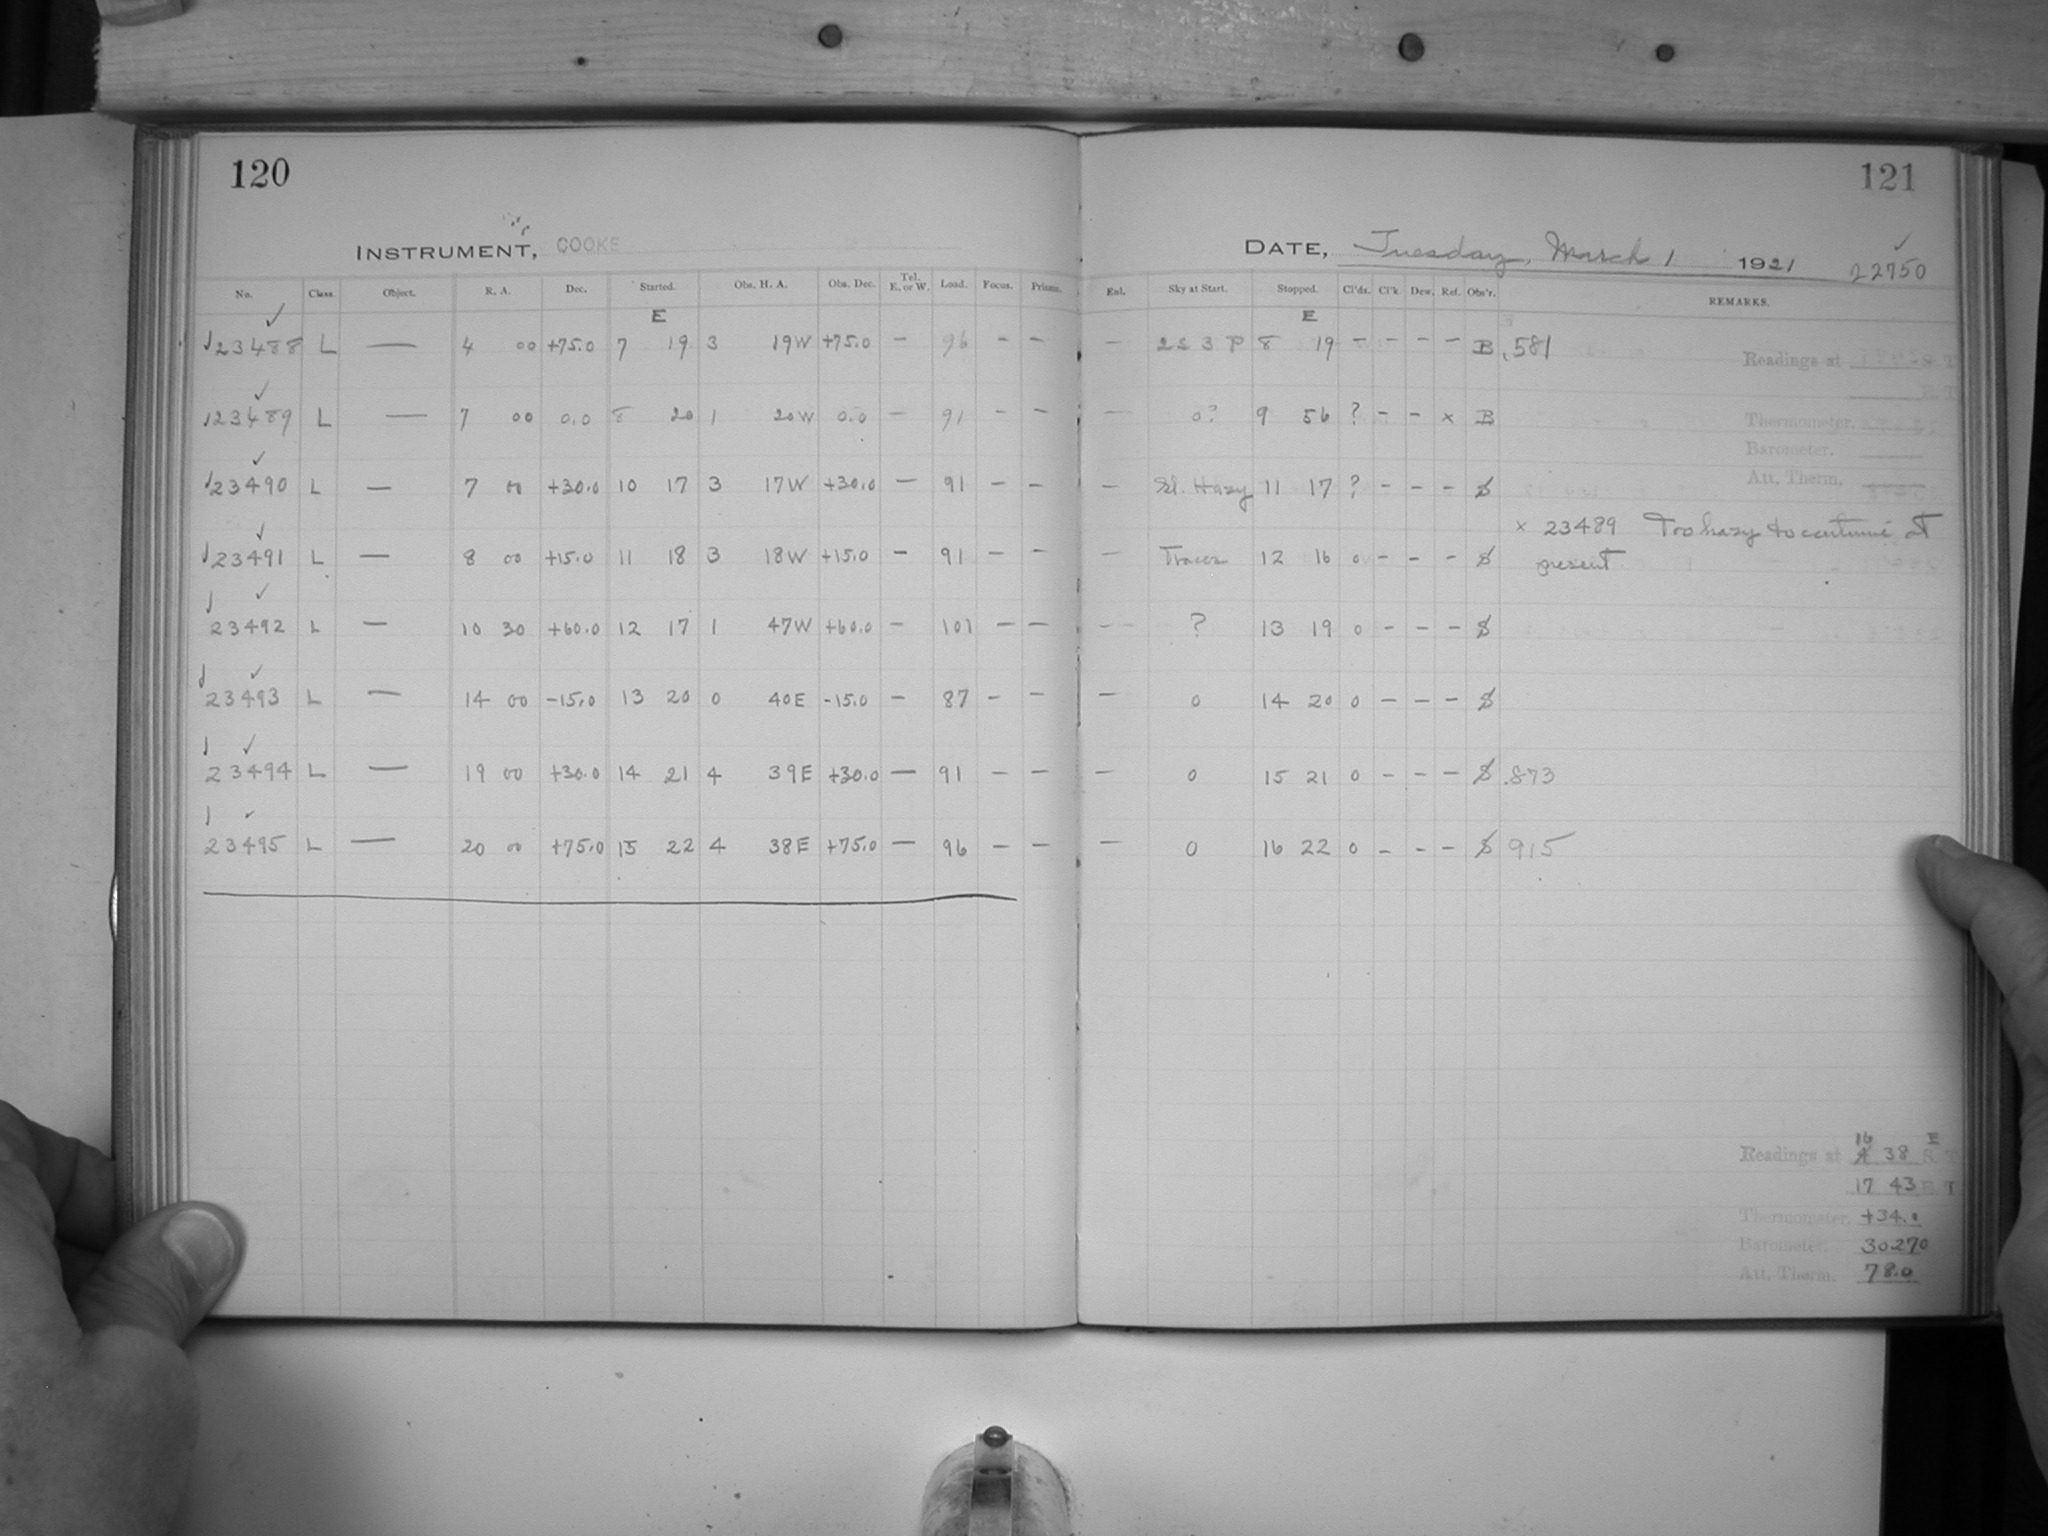 120
INSTRUMENT, COOKE
No. Class. Object. R. A. Dec. Started. Obs. H. A. Obs. Dec. Tel. E. or W. Load. Focus. Prisms.
E
23488 L — 4 00 +75.0 7 19 3 19W +75.0 — 96 — —
23489 L — 7 00 0.0 8 20 1 20W 0.0 — 91 — —
23490 L — 7 00 +30.0 10 17 3 17W +30.0 — 91 — —
23491 L — 8 00 +15.0 11 18 3 18W +15.0 — 91 — —
23492 L — 10 30 +60.0 12 17 1 47W +60.0 — 101 — —
23493 L — 14 00 -15.0 13 20 0 40E -15.0 — 87 — —
23494 L — 19 00 +30.0 14 21 4 39E +30.0 — 91 — —
23495 L — 20 00 +75.0 15 22 4 38E +75.0 — 96 — —
121
DATE, Tuesday, March 1 1921 22750
Enl. Sky at Start. Stopped. Cl'ds. Cl'k. Dew. Ref. Obs'r. REMARKS.
E
— 8 19 — — — — B .581
Readings at
— 0? 9 56 ? — — x B
Thermometer.
Barometer.
Att. Therm.
— Sl. Hazy 11 17 ? — — — S
x 23489 Too hazy to continue at
present
— Traces 12 16 0 — — — S
— ? 13 19 0 — — — S
— 0 14 20 0 — — — S
— 0 15 21 0 — — — S .873
— 0 16 22 0 — — — S 915
16 E
Readings at 4 38 S. T
17 43 E. T
Thermometer. +34.0
Barometer. 30.270
Att. Therm. 78.0